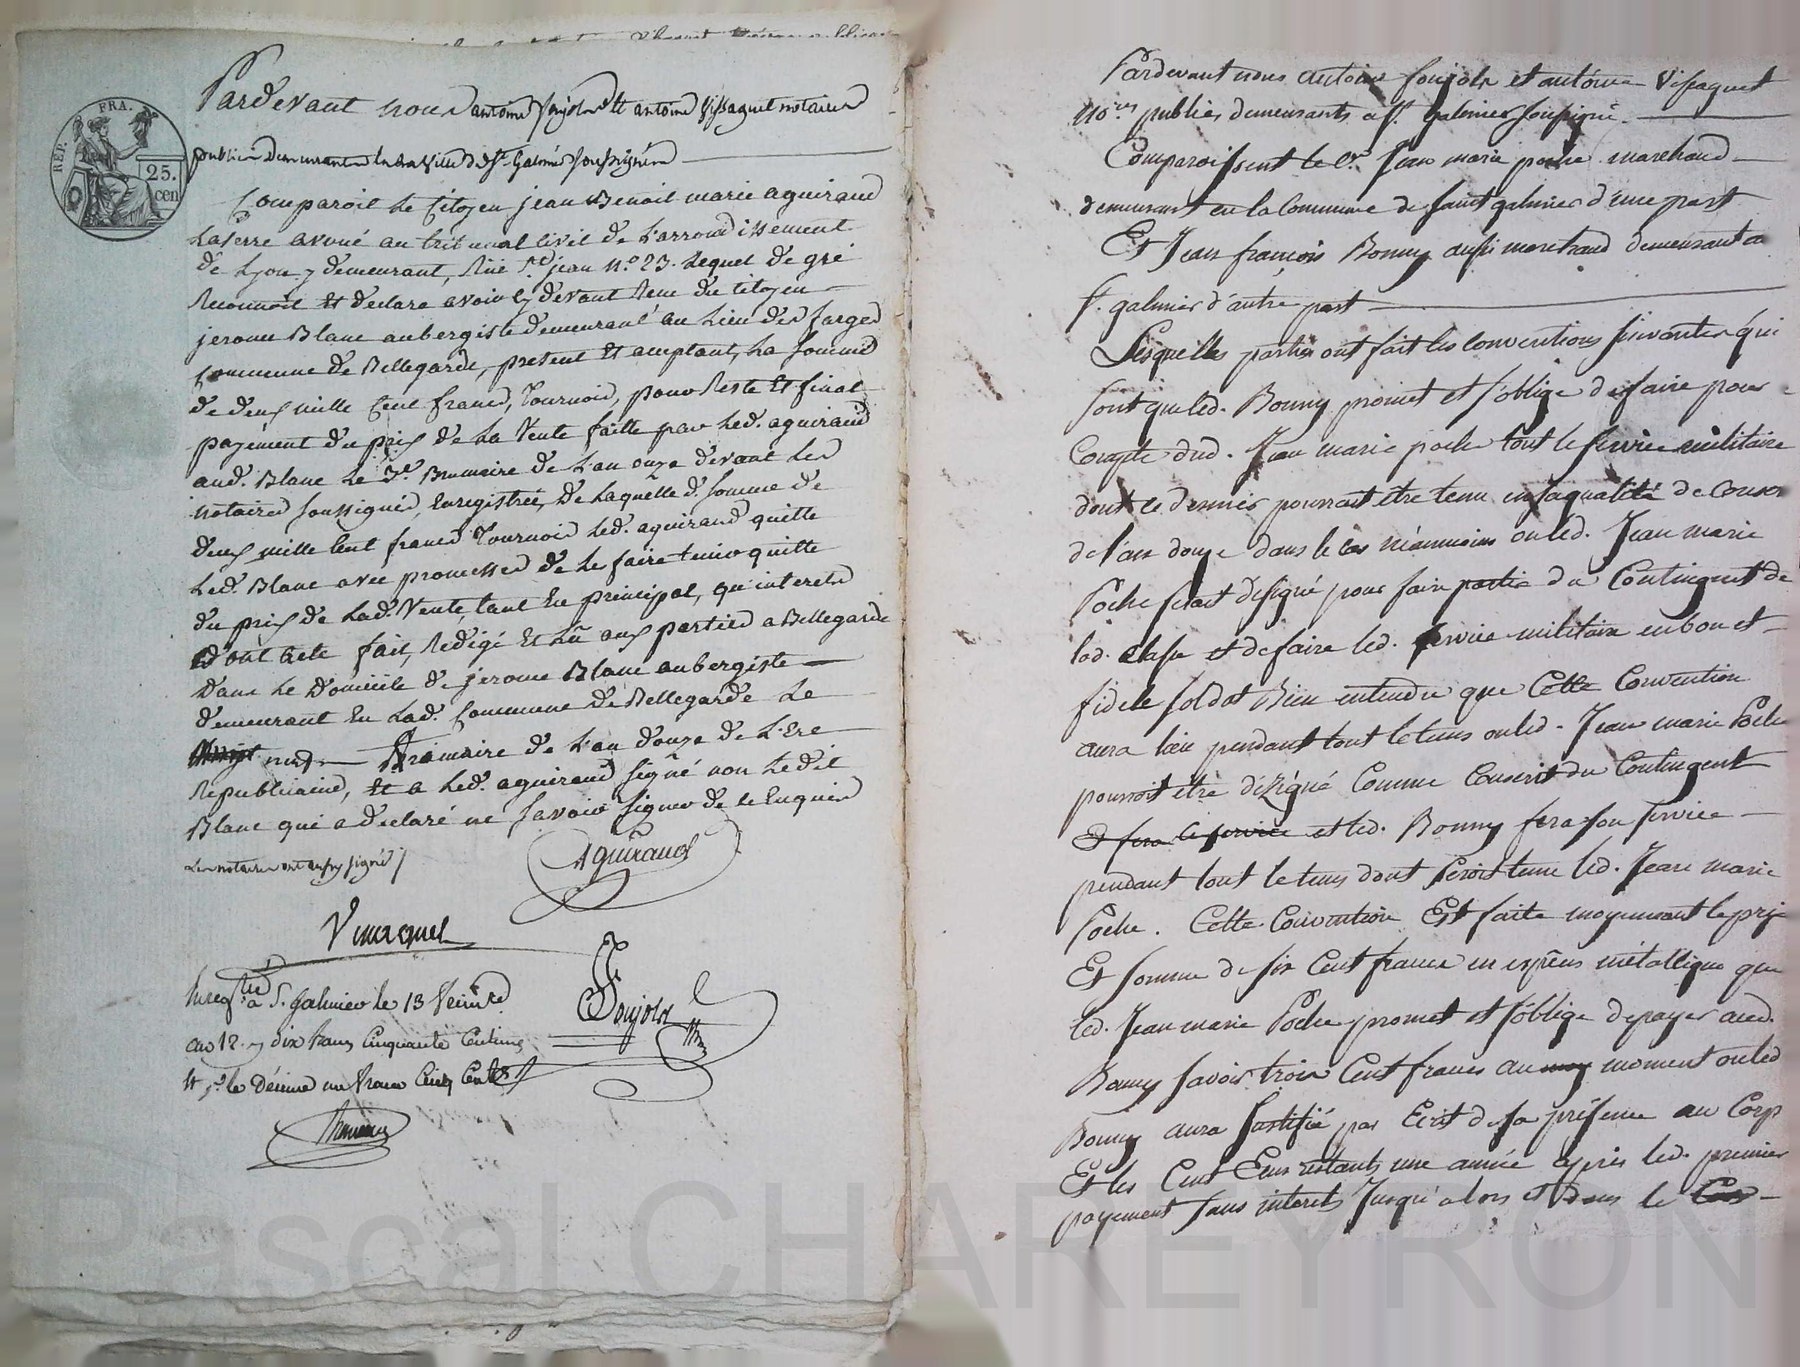 REP. FRA.
25.
cen
Pardevant nous antoine Soujols et antoine Vissaguet notaires
publics demeurants en la ville de St. Galmier soussignés
Comparoit le Citoyen jean Benoit marie aguiraud
Laserre avoué au tribunal Civil de L'arrondissement
de Lyon y demeurant, Rue St. jean n.o 23. Lequel de gré
Reconnoit et declare avoir cy devant Reçu du Citoyen
jerome Blanc aubergiste demeurant au Lieu des farges
Commune de Bellegarde, present et acceptant, La somme
de deux mille Cent francs, Tournois, pour Reste et final
payement du prix de La Vente faitte par Led. aguiraud
aud. Blanc Le 3e. Brumaire de L'an onze devant Les
notaires soussignés, Enregistrée, De Laquelle d. somme de
deux mille Cent francs Tournois Led. aguiraud quitte
Led. Blanc avec promesses de Le faire tenir quitte
du prix de Lad. Vente, tant En principal, qu'interets
Dont acte fait, Redigé et Lû aux parties a Bellegarde
Dans Le Domicile de jerome Blanc aubergiste
demeurant En Lad. Commune de Bellegarde Le
neuf frimaire de L'an Douze de L'Ere
Republicaine, et a Led. aguiraud signé non Ledit
Blanc qui a declaré ne savoir signer de ce Enquis
Les notaires ont aussy signé
Aguiraud
Vissaguet
Soujols
Enregtré à St. Galmier le 13 frimre
an 12. dix francs Cinquante Centimes
et pr. le Décime un franc Cinq Cent.
Pardevant nous antoine Soujols et antoine Vissaguet
no.res publics demeurants a St. galmier soussigné.
Comparoissent le Cn. Jean marie poche marchand
demeurant en la Commune de saint galmier d'une part
Et Jean françois Bonny aussi marchand demeurant a
St. galmier d'autre part
Lesquelles parties ont fait les conventions suivantes qui
sont que led. Bonny promet et s'oblige de faire pour
Compte dud. Jean marie poche tout le service militaire
dont ce dernier pourrait etre tenu en sa qualité de Conscr
de l'an douze dans le cas néanmoins ou led. Jean marie
Poche serait désigné pour faire partie du Contingent de
lad. classe et de faire led. service militaire en bon et
fidele soldat Bien entendu que Cette Convention
aura lieu pendant tout le tems ou led. Jean marie Poche
pourroit être désigné Comme Conscrit du Contingent
Et fera le service et led. Bonny fera son service
pendant tout le tems dont seroit tenu led. Jean marie
Poche. Cette Convention Est faite moyennant le prix
Et somme de six Cent francs en espèces métallique que
led. Jean marie Poche promet et s'oblige de payer aud.
Bonny savoir trois Cent francs au moment ou led
Bonny aura justifié par Ecrit de sa présence au Corps
Et les Cent Ecus restants une année après led. premier
payement sans interets Jusqu'alors et dans le Cas
Pascal CHAREYRON